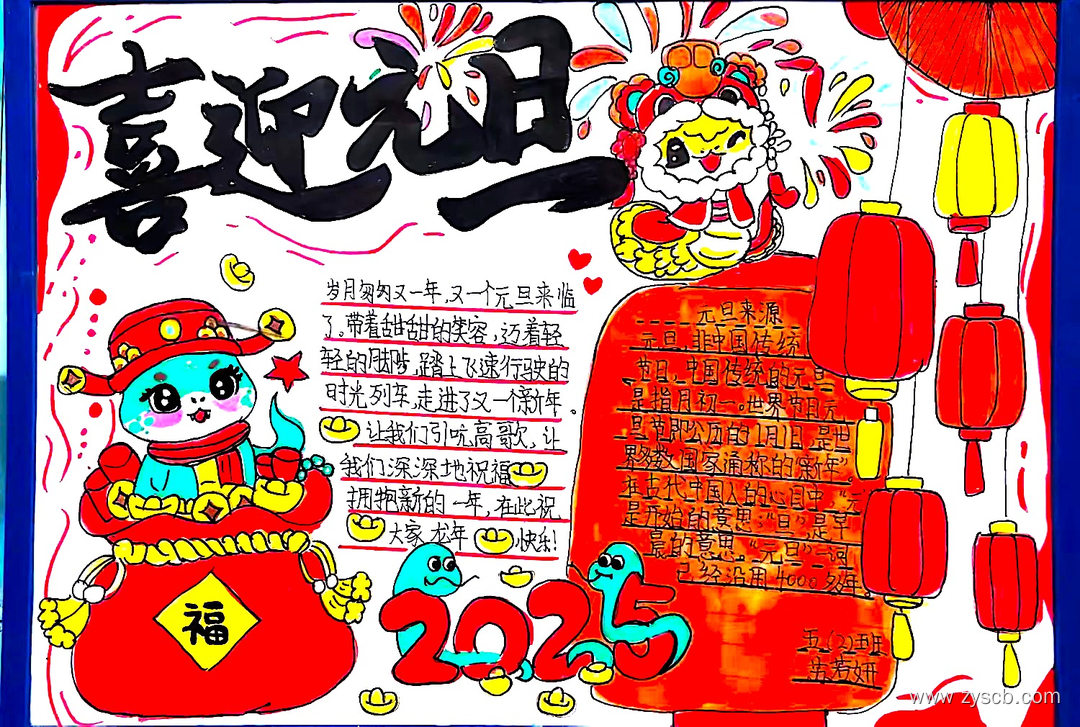 喜迎元旦
岁月匆匆又一年，又一个元旦来临
了。带着甜甜的笑容，迈着轻
轻的脚步，踏上飞速行驶的
时光列车，走进了又一个新年。
让我们引吭高歌，让
我们深深地祝福
拥抱新的一年，在此祝
大家龙年快乐！
福
2025
元旦来源
元旦，非中国传统
节日，中国传统的元旦
是指月初一。世界节日元
旦节即公历的1月1日，是世
界多数国家通称的“新年”。
在古代中国人的心目中，“元
是开始的意思，“旦”，是早
晨的意思。“元旦”一词
已经沿用4000多年。
五（2）班
www.zyscb.com